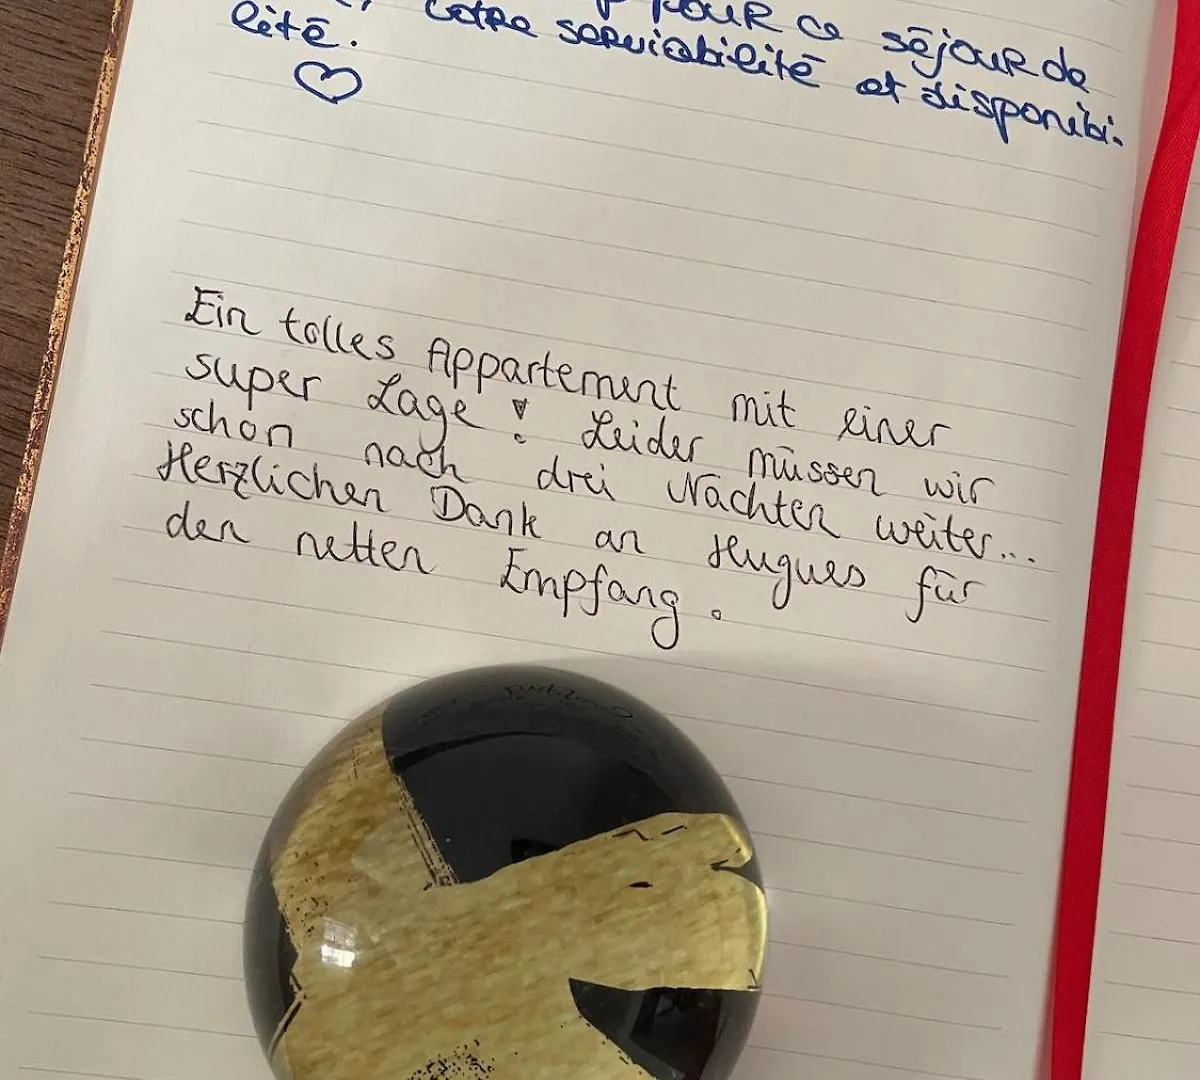 pour ce séjour de
votre serviabilité et disponibi-
lité.
Ein tolles Appartement mit einer
super Lage! Leider müssen wir
schon nach drei Nächten weiter...
Herzlichen Dank an Hugues für
den netten Empfang.